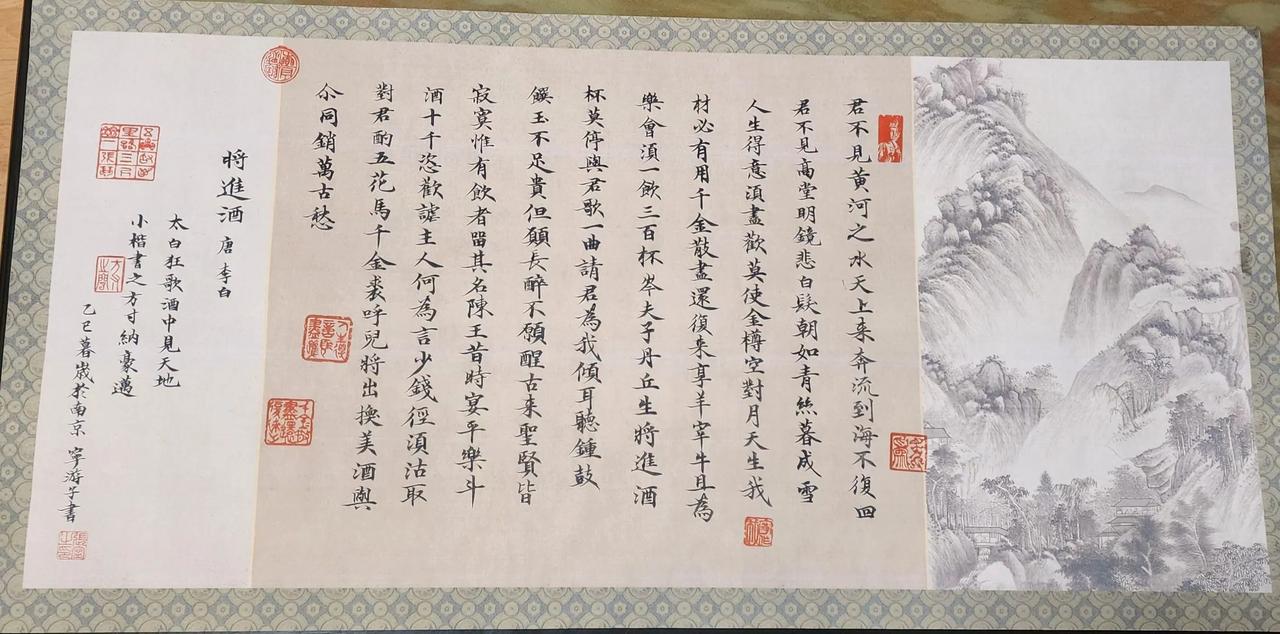 君不見黄河之水天上来奔流到海不復囬
君不見高堂明鏡悲白髮朝如青絲暮成雪
人生得意須盡歡莫使金樽空對月天生我
材必有用千金散盡還復来享羊宰牛且為
樂會須一飲三百杯岑夫子丹丘生將進酒
杯莫停與君歌一曲請君為我傾耳聽鍾鼓
饌玉不足貴但願長醉不願醒古来聖賢皆
寂寞惟有飲者畱其名陳王昔時宴平樂斗
酒十千恣歡謔主人何為言少錢徑須沽取
對君酌五花馬千金裘呼兒將出換美酒與
尒同銷萬古愁
将進酒 唐 李白
太白狂歌酒中見天地
小楷書之方寸納豪邁
乙巳暮歲於南京 寧游子書